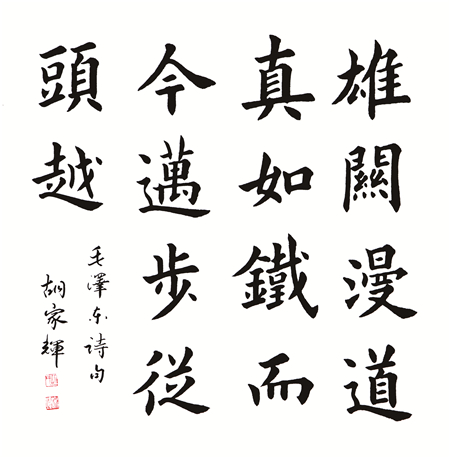 雄關漫道
真如鐵而
今邁步從
頭越
毛澤东詩句
胡家輝